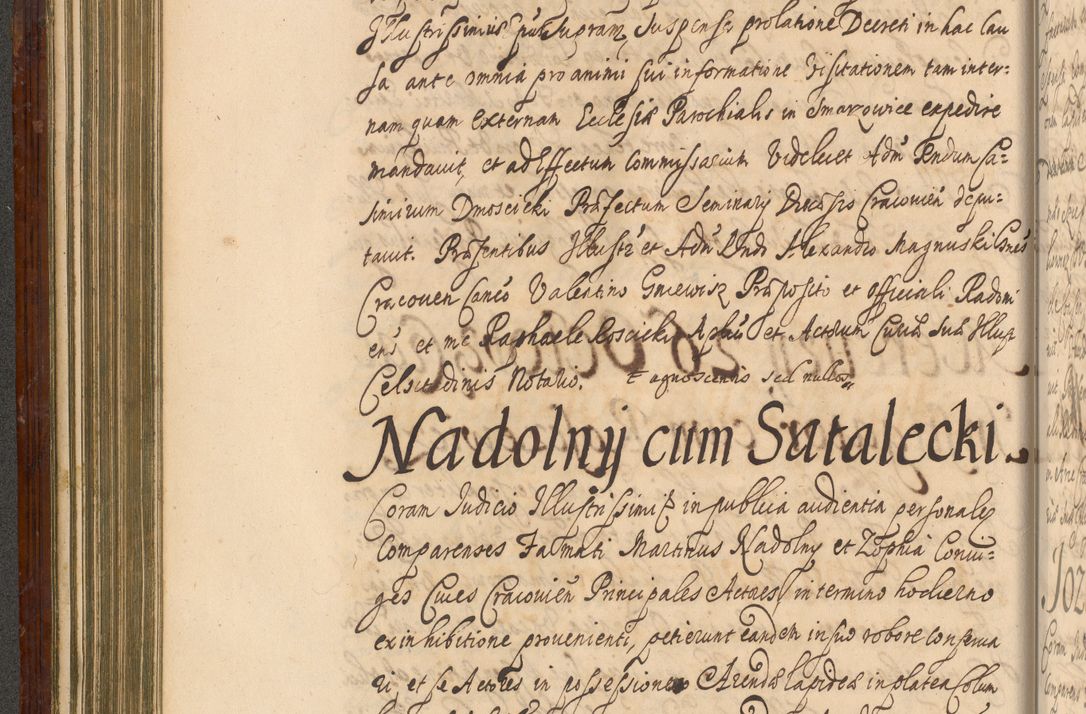 Illustrissimus pntsupram, suspensa prolatione Decreti in hac cau
sa ante omnia pro animi sui informatione Visitationem tam inter:
nam quam externam Ecclesiæ Parochialis in Smarzowice expedire
mandavit, et ad effectum Commissarium Videlicet Adm Rndum Ca:
simirum Dmoscicki Præfectum Seminarÿ Diœcesis Cracovien depu:
tavit. Præsentibus Illustr et Adm Rndi Alexandro Magnuski Gnes
Cracovien Canco Valentino Gniewisz Præposito et officiali Radomi
ens et me Raphaele Loscicki Aplico et Actorum Curiæ Suæ Illust
Celsitudinis Notario. agnoscentis sed nullos
Nadolnÿ cum Sutalecki.
Coram Judicio Illustrissimi in publica audientia personaly
Comparenses Famati Martinus Nadolny et Zophia Coniu:
ges Cives Cracovien Principales Actores, in termino hodierno
ex inhibitione provenienti, petierunt eandem in suo robore conserva
ri, et se Actores in possessione Arendæ lapideæ in platea Colum